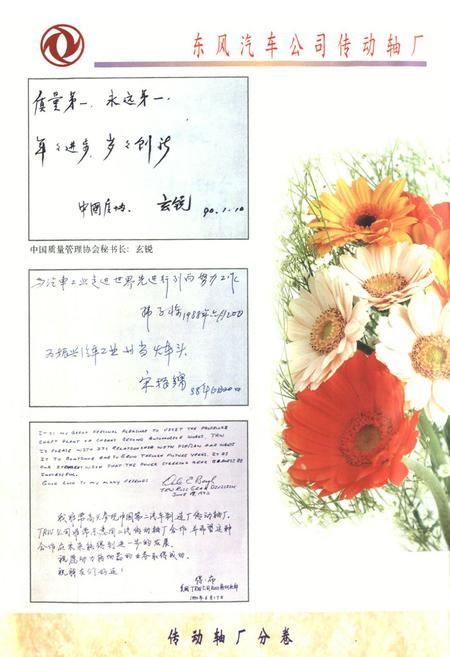 东风汽车公司传动轴厂
质量第一、永远第一.
年々进步、岁々创新
中国质协. 玄锐 90.1.10
中国质量管理协会秘书长：玄锐
为汽車工业走进世界先进行列而努力工作
1988年六月20日
为振兴汽车工业 当火车头
宋
88年6月20日
It is my great personal pleasure to visit the propeller
shaft plant of China's Second Automobile Works. TRW
is please with its relationship with DFM/SAW and wants
it to continue and to grow through future years. It is
our strongest wish that the power steering gear business be
successful.
Good luck to my many friends.
TRW Ross Gear Division
June 17, 1992
我非常高兴参观中国第二汽车制造厂传动轴厂.
TRW公司非常乐意同二汽传动轴厂合作 并希望这种
合作在未来能得到进一步的发展.
祝愿动力转向器的业务取得成功.
祝朋友们好运！
1992年6月17日
传动轴厂分卷